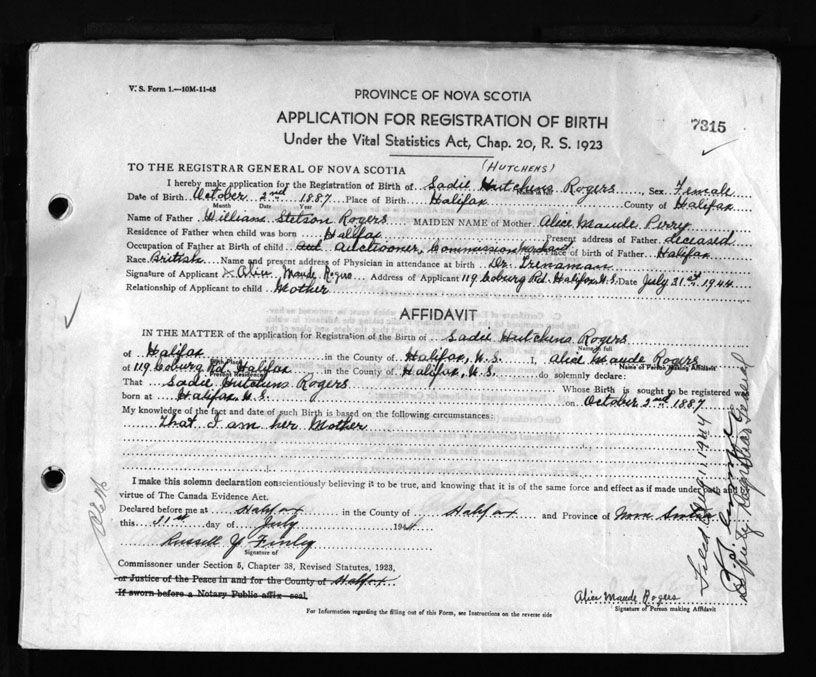 V. S. Form 1.—10M-11-43
PROVINCE OF NOVA SCOTIA
APPLICATION FOR REGISTRATION OF BIRTH
7315
Under the Vital Statistics Act, Chap. 20, R. S. 1923
(HUTCHENS)
TO THE REGISTRAR GENERAL OF NOVA SCOTIA
I hereby make application for the Registration of Birth of Sadie Hutchens Rogers, Sex Female
Date of Birth October 2nd 1887 Place of Birth Halifax County of Halifax
Month Date Year
Name of Father William Stetson Rogers MAIDEN NAME of Mother Alice Maude Perry
Residence of Father when child was born Halifax Present address of Father deceased
Occupation of Father at Birth of child Auctioneer, Commission Place of birth of Father Halifax
Race British Name and present address of Physician in attendance at birth Dr. Trenaman
Signature of Applicant X Alice Maude Rogers Address of Applicant 119 Coburg Rd. Halifax, N.S. Date July 31st 1944
Relationship of Applicant to child Mother
AFFIDAVIT
IN THE MATTER of the application for Registration of the Birth of Sadie Hutchens Rogers
Name in full
of Halifax in the County of Halifax, N.S. I, Alice Maude Rogers
Birth Place Name of Person Making Affidavit
of 119 Coburg Rd, Halifax in the County of Halifax, N.S. do solemnly declare:
Present Residence
That Sadie Hutchens Rogers Whose Birth is sought to be registered was
born at Halifax N.S. on October 2nd 1887
My knowledge of the fact and date of such Birth is based on the following circumstances:
That I am her Mother
I make this solemn declaration conscientiously believing it to be true, and knowing that it is of the same force and effect as if made under oath and by
virtue of The Canada Evidence Act.
Declared before me at Halifax in the County of Halifax and Province of Nova Scotia
this 31st day of July 1944
Russell Finley
Signature of
Commissioner under Section 5, Chapter 38, Revised Statutes, 1923,
or Justice of the Peace in and for the County of Halifax
If sworn before a Notary Public affix seal
Alice Maude Rogers
Signature of Person making Affidavit
For Information regarding the filling out of this Form, see Instructions on the reverse side
Filed Aug 1 1944
Deputy Registrar General